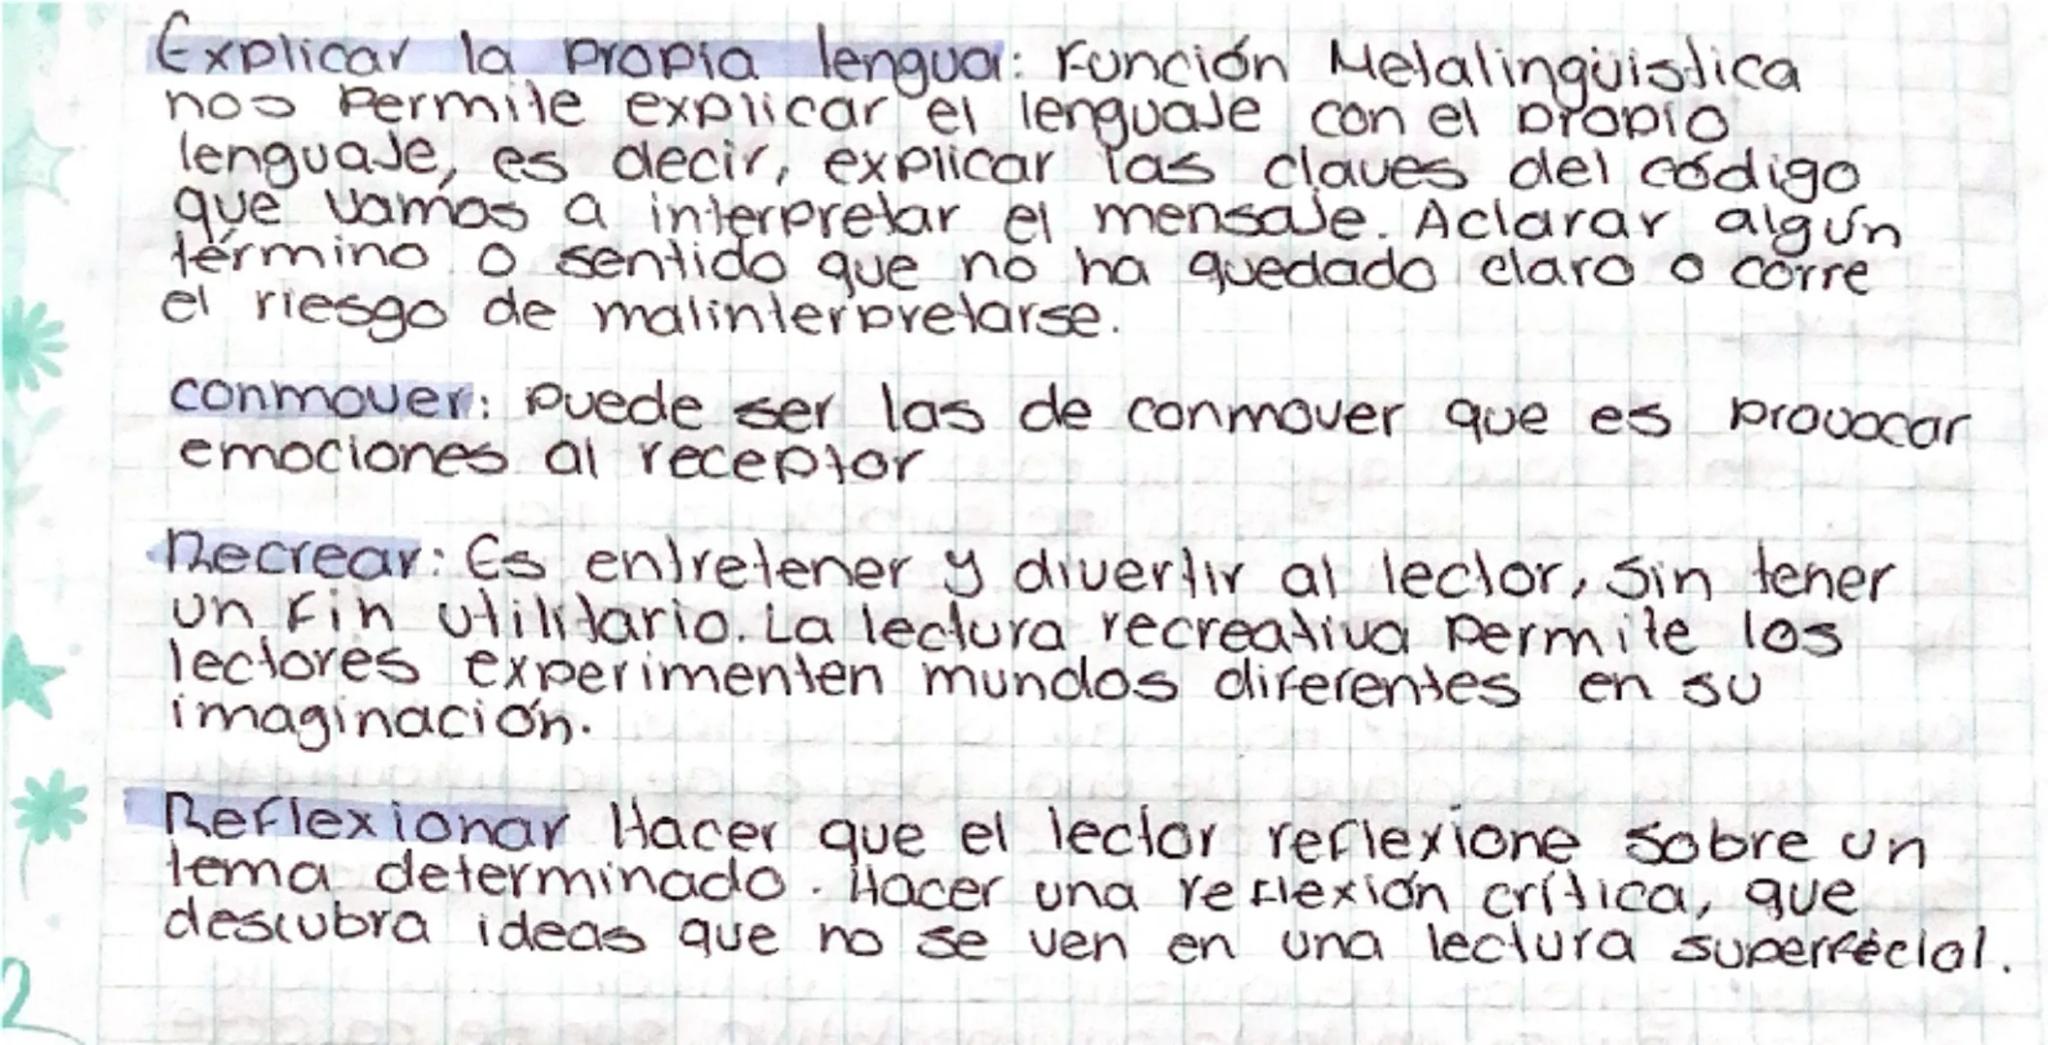 Explicar la propia lengua: Función Metalingüistica
nos permite explicar el lenguaje con el propio
lenguaje, es decir, explicar las claves del código
que vamos a interpretar el mensaje. Aclarar algún
término o sentido que no ha quedado claro o corre
el riesgo de malinterpretarse.
conmover: puede ser las de conmover que es provocar
emociones al receptor
Recrear: Es entretener y divertir al lector, sin tener
un fin utilitario. La lectura recreativa permite los
lectores experimenten mundos diferentes en su
imaginación.
Reflexionar Hacer que el lector reflexione sobre un
tema determinado. Hacer una reflexión crítica, que
descubra ideas que no se ven en una lectura superfecial.
2